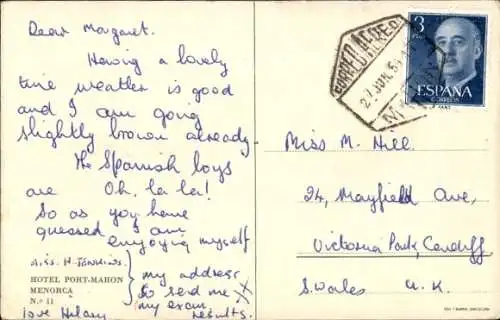 Dear Margaret.
Having a lovely
time weather is good
and I am going
slightly brown already
the Spanish boys
are Oh, la la!
So as you have
guessed I am
enjoying myself
Miss H. Jenkins.
HOTEL PORT-MAHON
MENORCA
N.º 11
my address
So send me
my exam
results.
love Hilary
CORREO AEREO
27 JUN. 5
3
ESPAÑA
CORREOS
Miss M. Hill.
24, Mayfield Ave,
Victoria Park, Cardiff
S. Wales U. K.